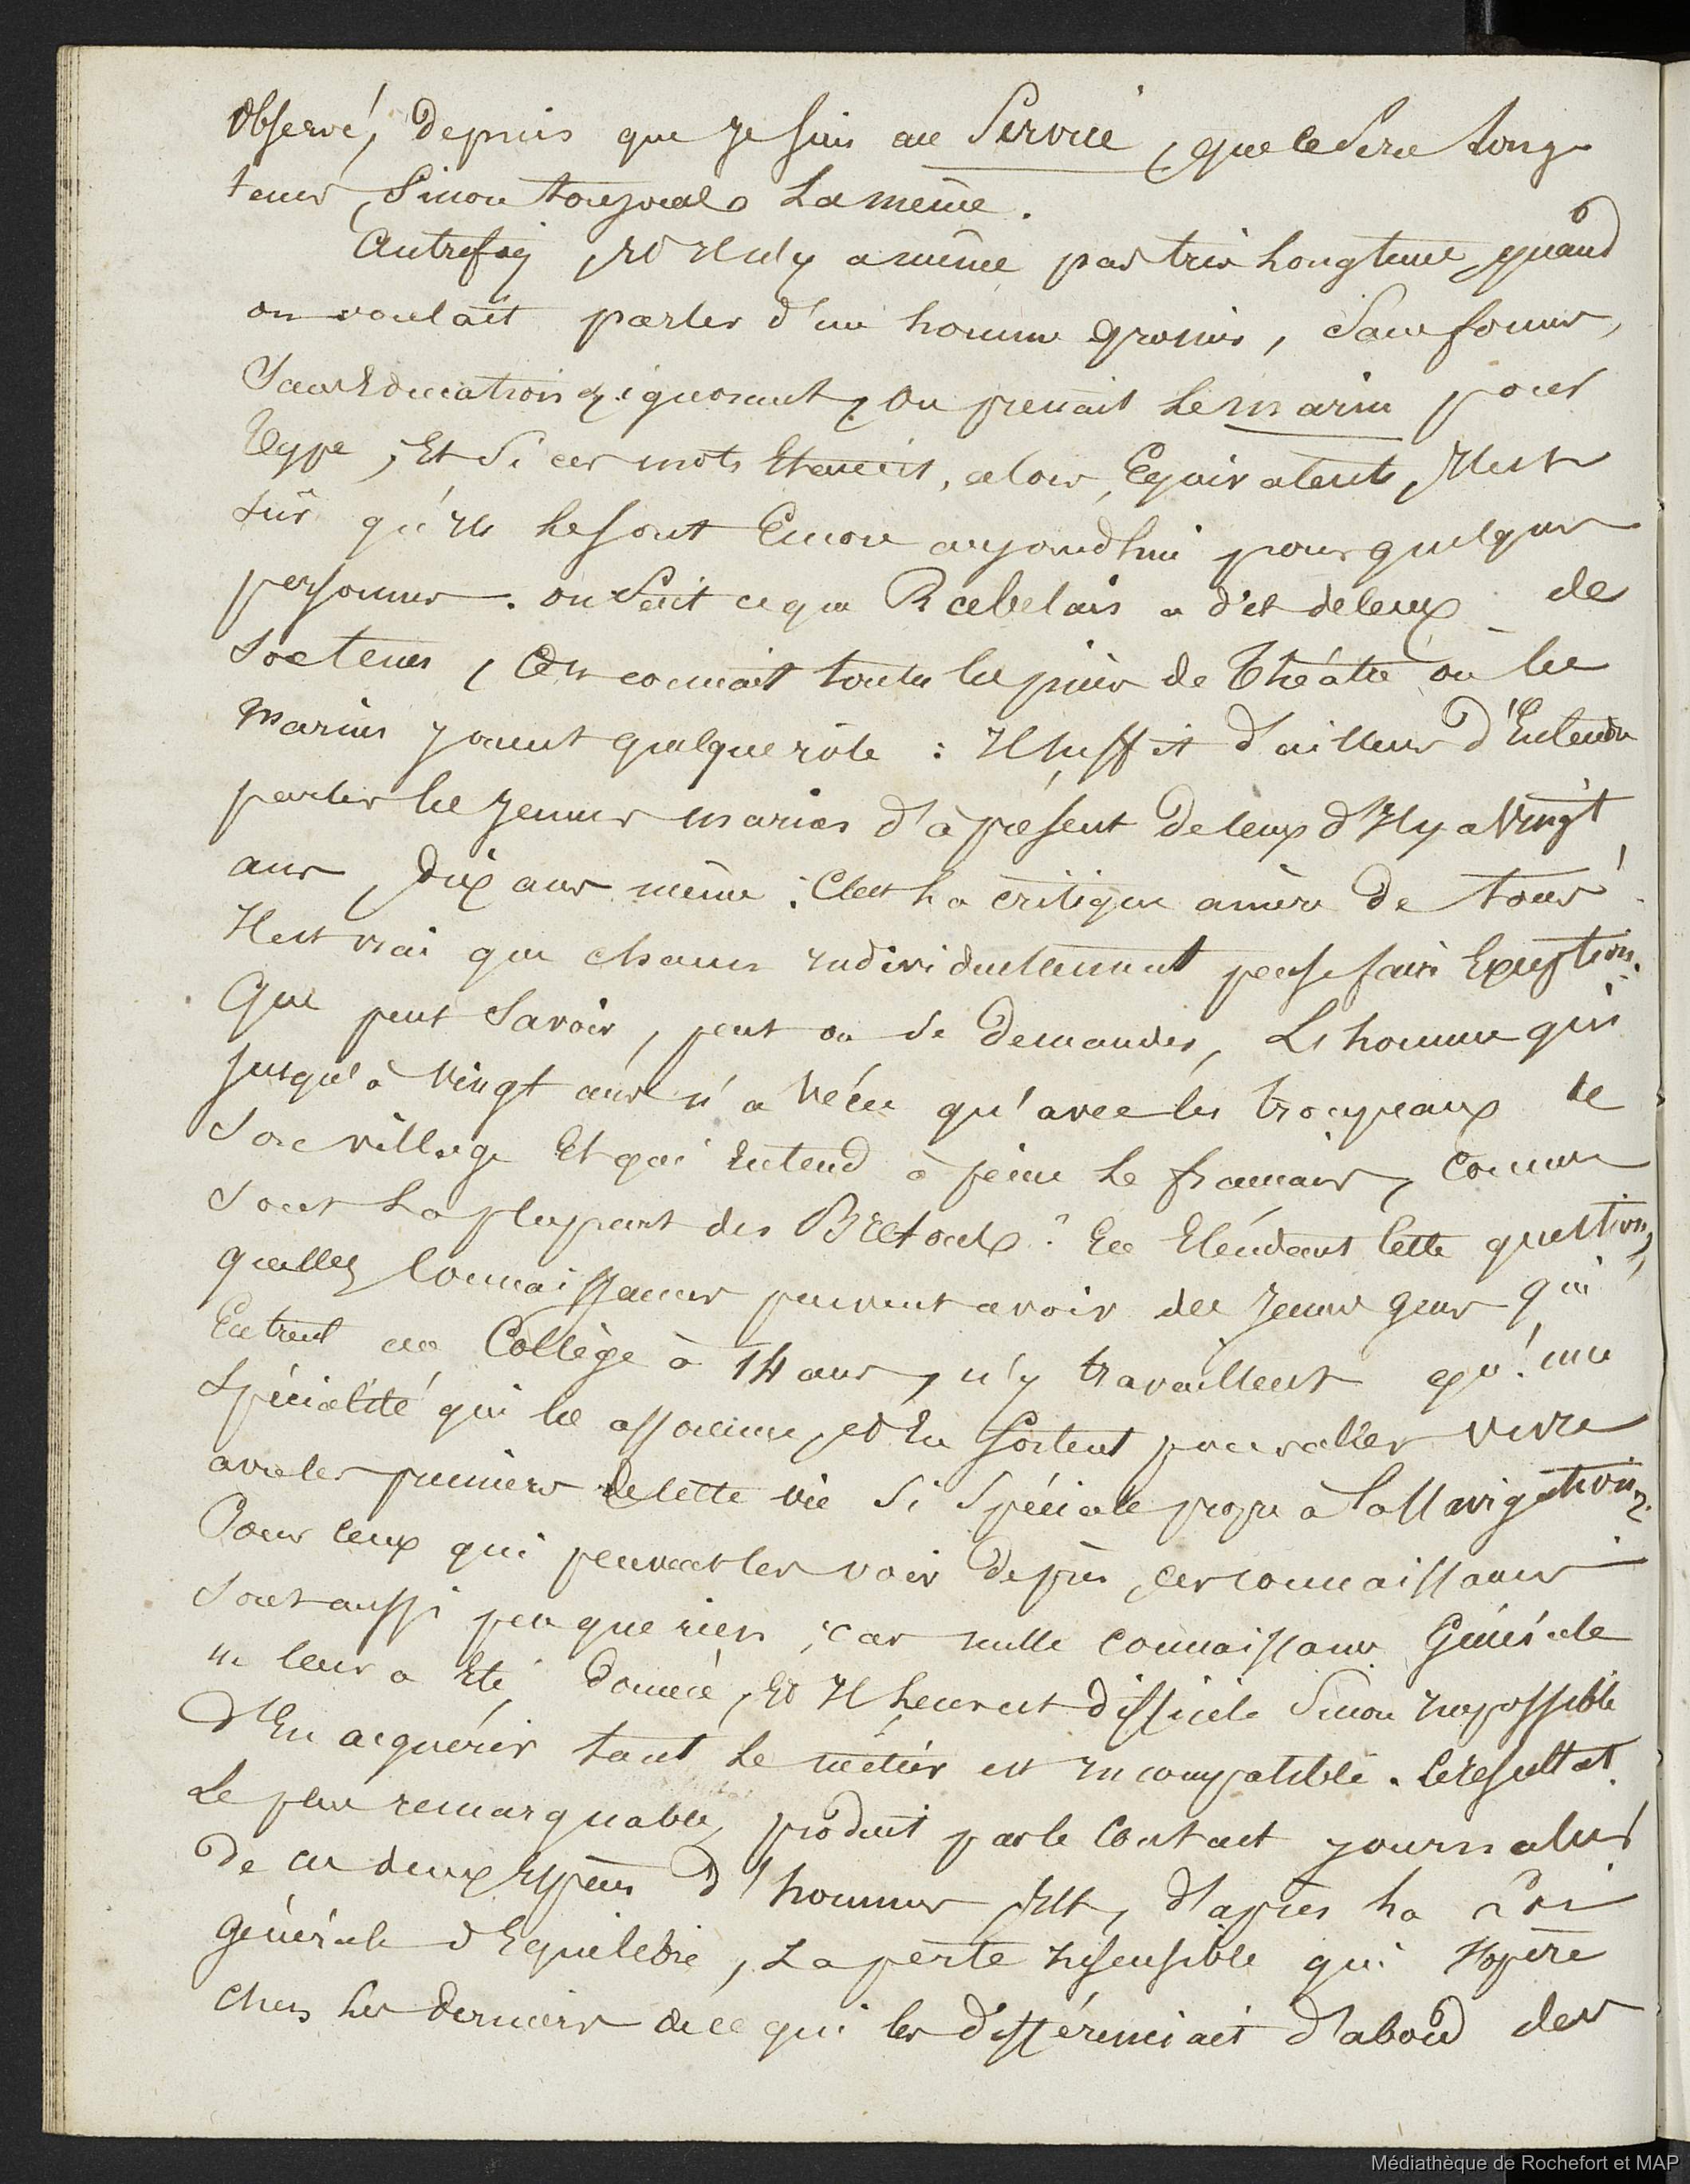 observé, depuis que je suis au Service, que ce sera long-
tems, Sinon toujours la même.
Autrefois, et il n'y a même pas très longtems, quand
on voulait parler d'un homme grossier, sans formes,
sans Education, ignorant, on prenait le marin pour
type, Et si ces mots Etaient, alors, Equivalents, il est
sûr qu'ils le sont Encore aujourdhui pour quelques
personnes. on sait ce que Rabelais a dit de ceux de
son tems, on connait toutes les pièces de théâtre où les
marins jouent quelque rôle : il suffit d'ailleurs d'Entendre
parler les jeunes marins d'à présent de ceux d'il y a vingt
ans, dix ans même : C'est la critique amère de tous.
il est vrai que chacun individuellement pense faire Exception.
Que peut savoir, peut on se demander, L'homme qui
jusqu'à vingt ans n'a vécu qu'avec les troupeaux de
son village Et qui Entend à peine le français, comme
sont la plupart des Bretons ? En Etendant cette question,
quelles connaissances peuvent avoir des jeunes gens qui
Entrent au Collège à 14 ans, n'y travaillent qu'une
spécialité qui les assomme, et En sortent pour aller vivre
avec les premiers de cette vie si spéciale propre à la Navigation ?
Pour ceux qui peuvent les voir de près, ces connaissances
sont aussi peu que rien, car nulle connaissance Générale
ne leur a Eté donnée, Et il leur est difficile sinon impossible
d'En acquérir tant le métier est incompatible. le resultat
le plus remarquable, produit par le contact journalier
de ces deux espèces d'hommes est, d'après la Loi
générale d'Equilibre, La perte insensible qui s'opère
chez les derniers de ce qui les différenciait d'abord des
Médiathèque de Rochefort et MAP